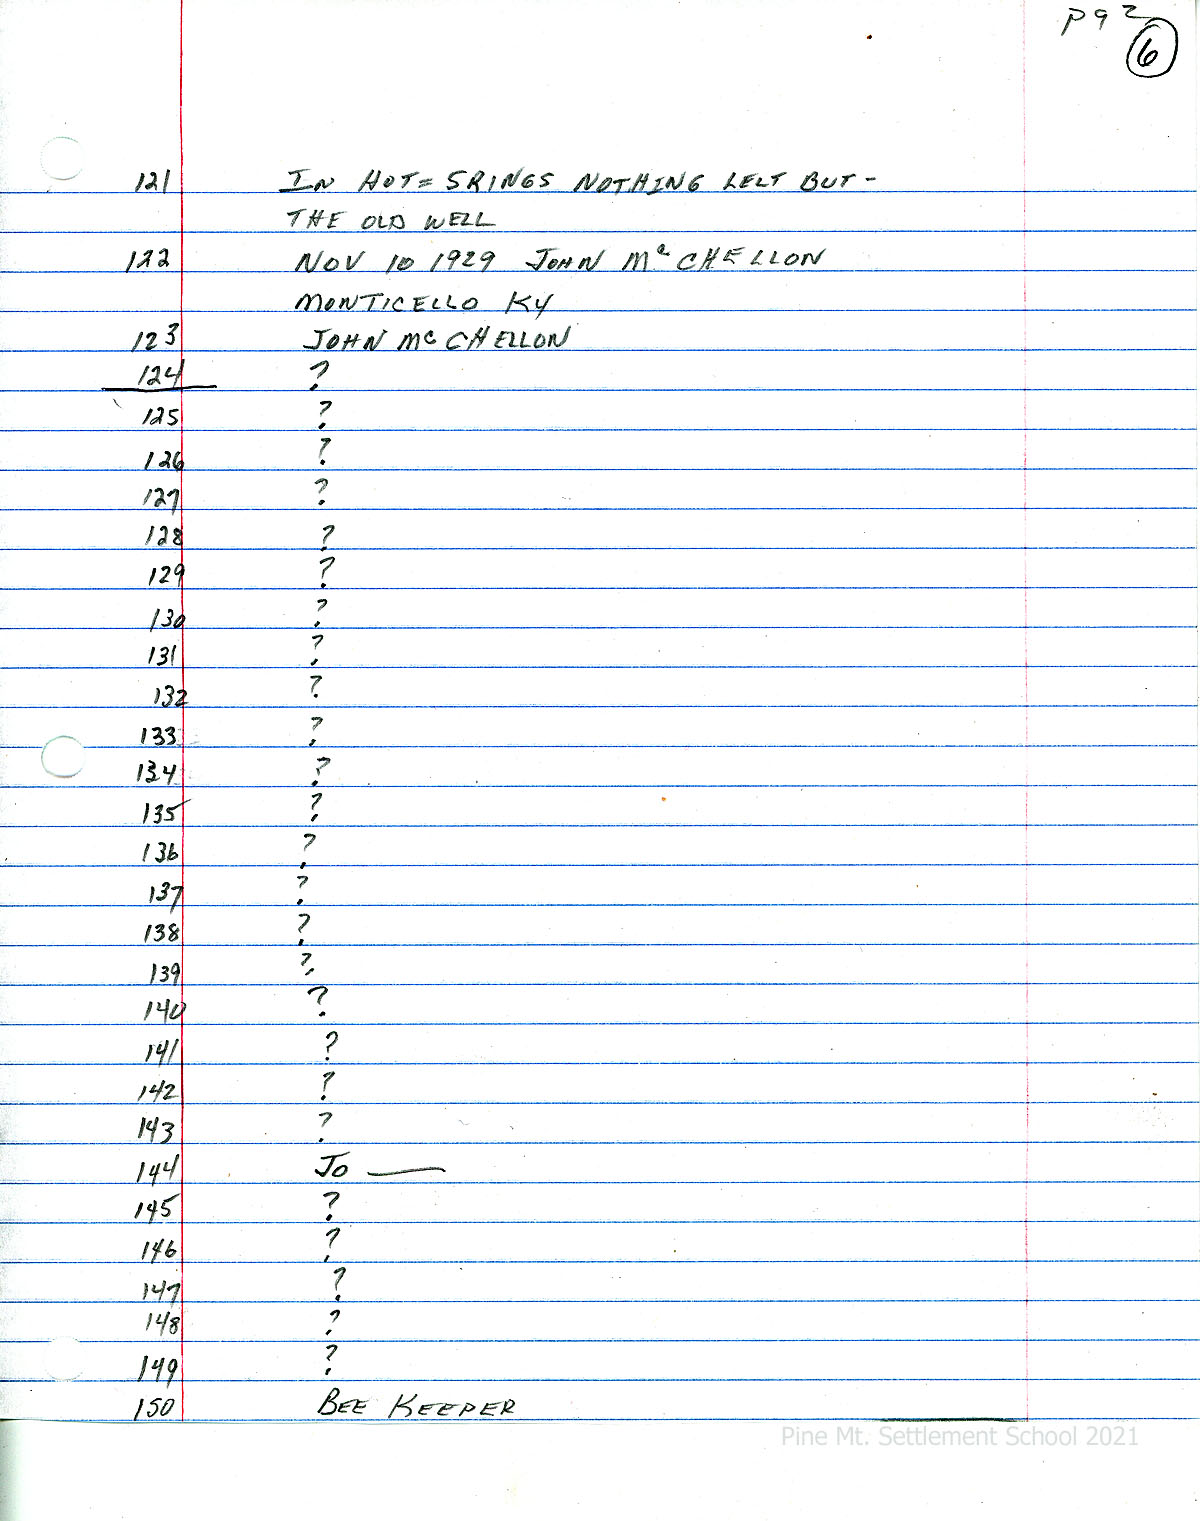 P92
6
121 IN HOT= SRINGS NOTHING LELT BUT-
THE OLD WELL
122 NOV 10 1929 JOHN Mc CHELLON
MONTICELLO KY
123 JOHN Mc CHELLON
124 ?
125 ?
126 ?
127 ?
128 ?
129 ?
130 ?
131 ?
132 ?
133 ?
134 ?
135 ?
136 ?
137 ?
138 ?
139 ?
140 ?
141 ?
142 ?
143 ?
144 JO —
145 ?
146 ?
147 ?
148 ?
149 ?
150 BEE KEEPER
Pine Mt. Settlement School 2021